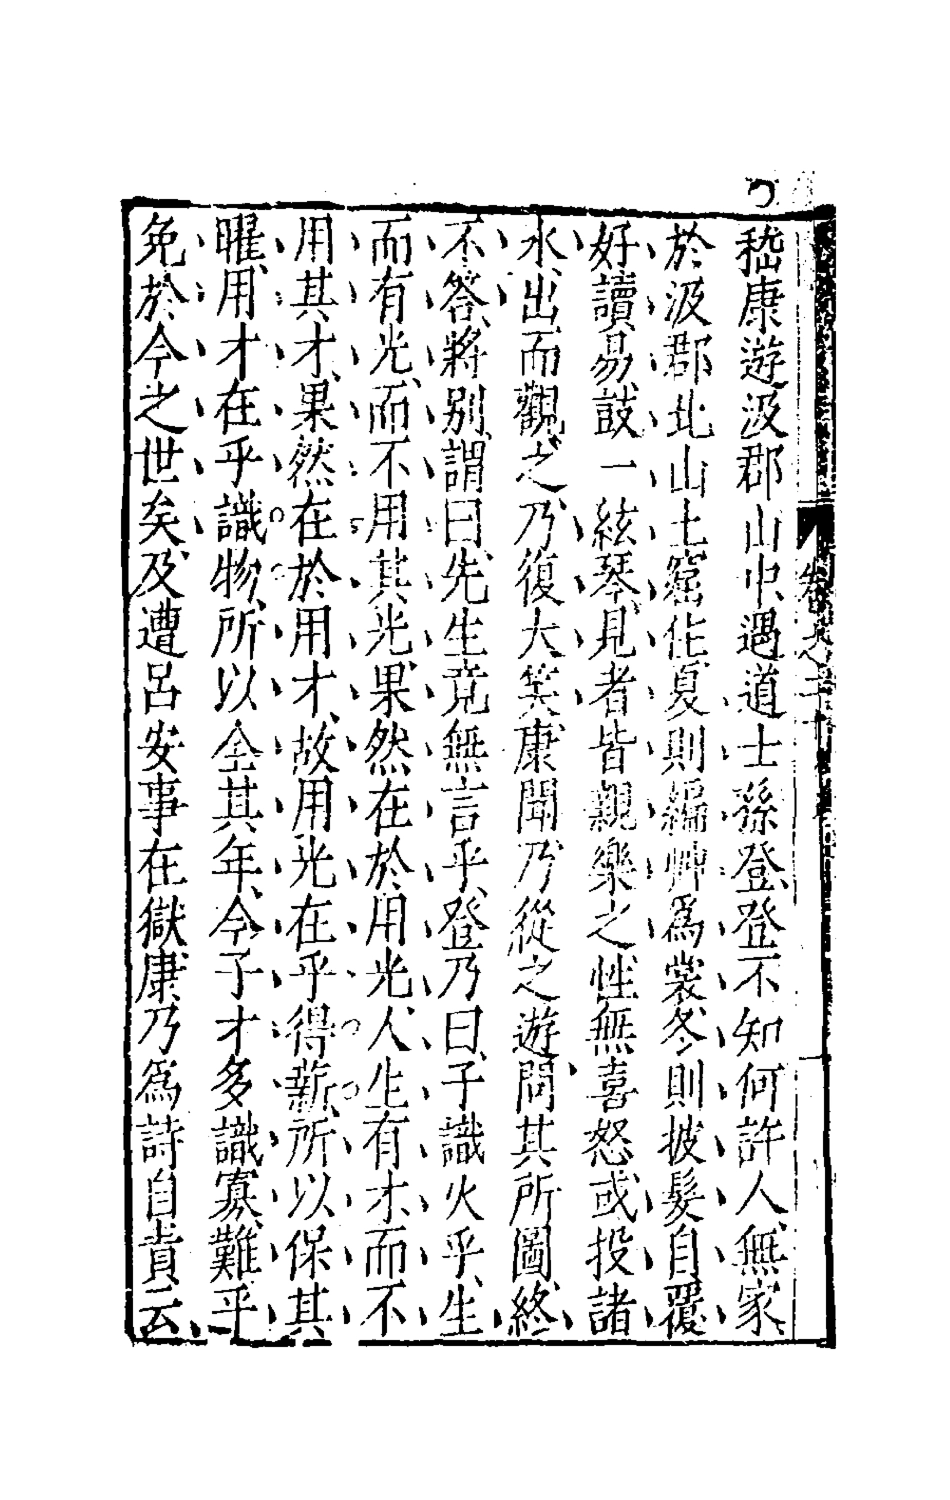 嵇康遊汲郡山中遇道士孫登登不知何許人無家
於汲郡北山土窟住夏則編艸為裳冬則披髮自覆
好讀易鼓一絃琴見者皆親樂之性無喜怒或投諸
水出而觀之乃復大笑康聞乃從之遊問其所圖終
不答將別謂曰先生竟無言乎登乃曰子識火乎生
而有光而不用其光果然在於用光人生有才而不
用其才果然在於用才故用光在乎得薪所以保其
曜用才在乎識物所以全其年今子才多識寡難乎
免於今之世矣及遭呂安事在獄康乃為詩自責云